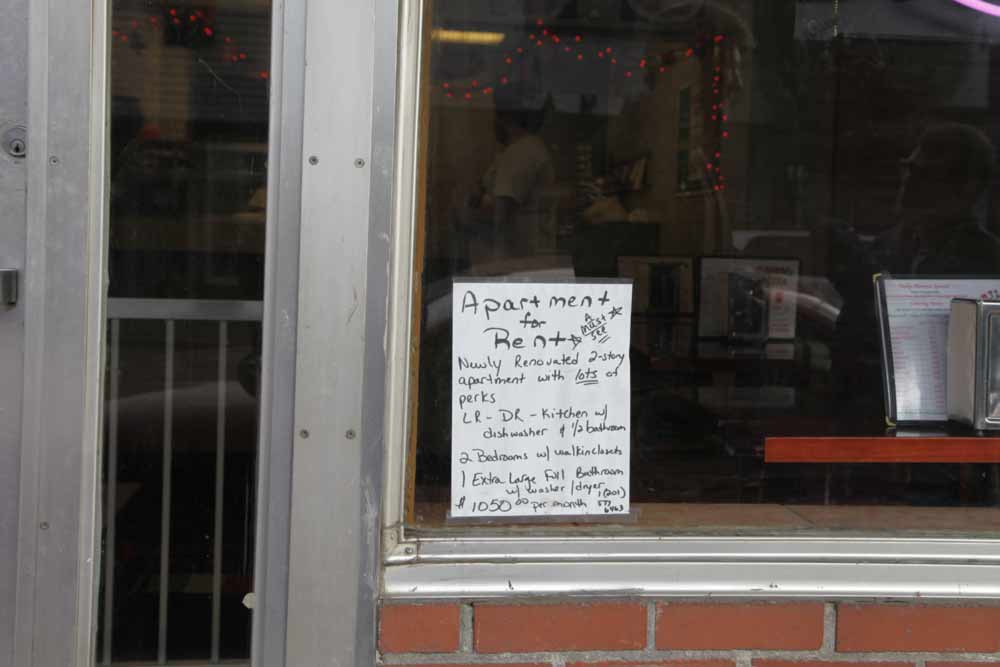 Apartment
for
Rent
A
must
see
Newly Renovated 2-story
apartment with lots of
perks
LR - DR - Kitchen w/
dishwasher & 1/2 bathroom
2 Bedrooms w/ walkinclosets
1 Extra Large Full Bathroom
w/ washer/dryer
$1050.00 per month
1(201)